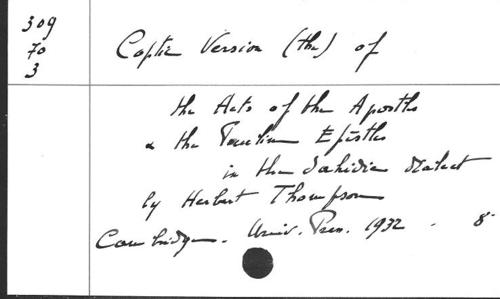 309
70
3
Coptic Version (the) of
the Acts of the Apostles
& the Pauline Epistles
in the Sahidic dialect
by Herbert Thompson
Cambridge. Univ. Press. 1932. 8°